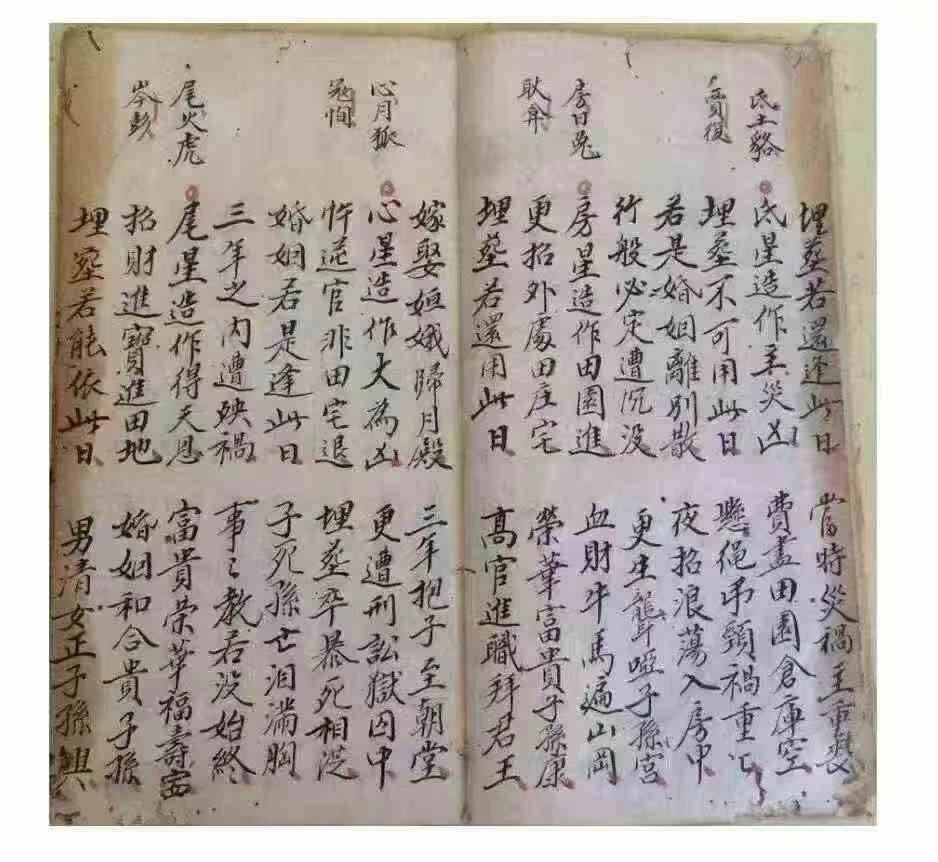 埋塟若還逢此日 當時災禍主重喪
氐土貉
賈復
氐星造作主災凶 費盡田園倉庫空
埋塟不可用此日 懸绳吊頸禍重亡
若是婚姻離別散 夜招浪蕩入房中
行般必定遭沉没 更生聾啞子孫宫
房日兔
耿弇
房星造作田園進 血財牛馬遍山岡
更招外處田庄宅 榮華富貴子孫康
埋塟若還用此日 高官進職拜君王
嫁娶姮娥歸月殿 三年抱子至朝堂
心月狐
寇恂
心星造作大為凶 更遭刑訟獄囚中
忤逆官非田宅退 埋塟卒暴死相從
婚姻若是逢此日 子死孫亡泪滿胸
三年之内遭殃禍 事〻教若没始終
尾火虎
岑彭
尾星造作得天恩 富貴榮華福壽
招財進寶進田地 婚姻和合貴子孫
埋塟若能依此日 男清女正子孫興